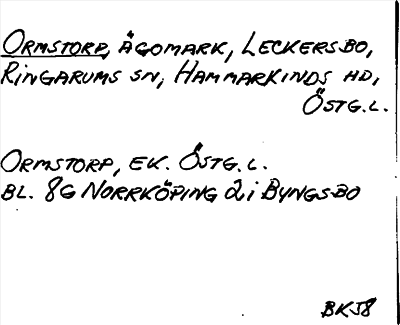 ORMSTORP, ÄGOMARK, LECKERSBO,
RINGARUMS SN, HAMMARKINDS HD,
ÖSTG.L.
ORMSTORP, EK. ÖSTG.L.
BL. 8G NORRKÖPING 2i BYNGSBO
BK58